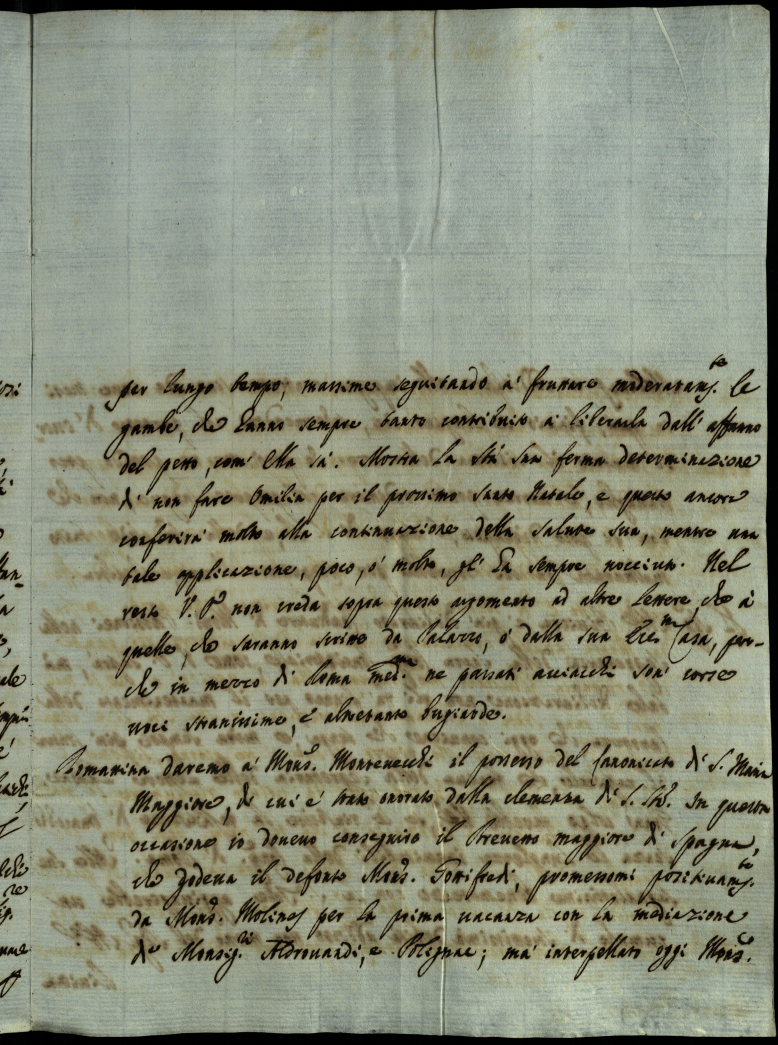 per lungo tempo; massime seguitando a' fruttare moderatam.te le
gambe, che hanno sempre tanto contribuito a' liberarla dall' affanno
del petto, com' Ella sà. Mostra la Stà Sua ferma determinazione
di non fare Omilia per il prossimo Santo Natale, e questo ancora
conferirà molto alla continuazione della salute sua, mentre una
tale applicazione, poco, ò molto, gl' hà sempre nociuto. Nel
resto V. P. non creda sopra questo argomento ad altre lettere, che à
quelle, che saranno scritte da Palazzo, ò dalla sua Casa, per-
che in mezzo di Roma med.ma ne passati acciacchi son' corse
voci stranissime, e altretanto bugiarde.
Domattina daremo à Mons. Montevecchi il possesso del Canonicato di S. Maria
Maggiore, di cui è stato onorato dalla clemenza di S. Stà. In questa
occasione io dovevo conseguire il Brevetto maggiore di Spagna,
che godeva il defonto Mons. Gottifredi, promessomi positivam.te
da Mons. Molines per la prima vacanza con la mediazione
de Monsig.ri Aldrovandi, e Polignac; mà interpellato oggi Mons.